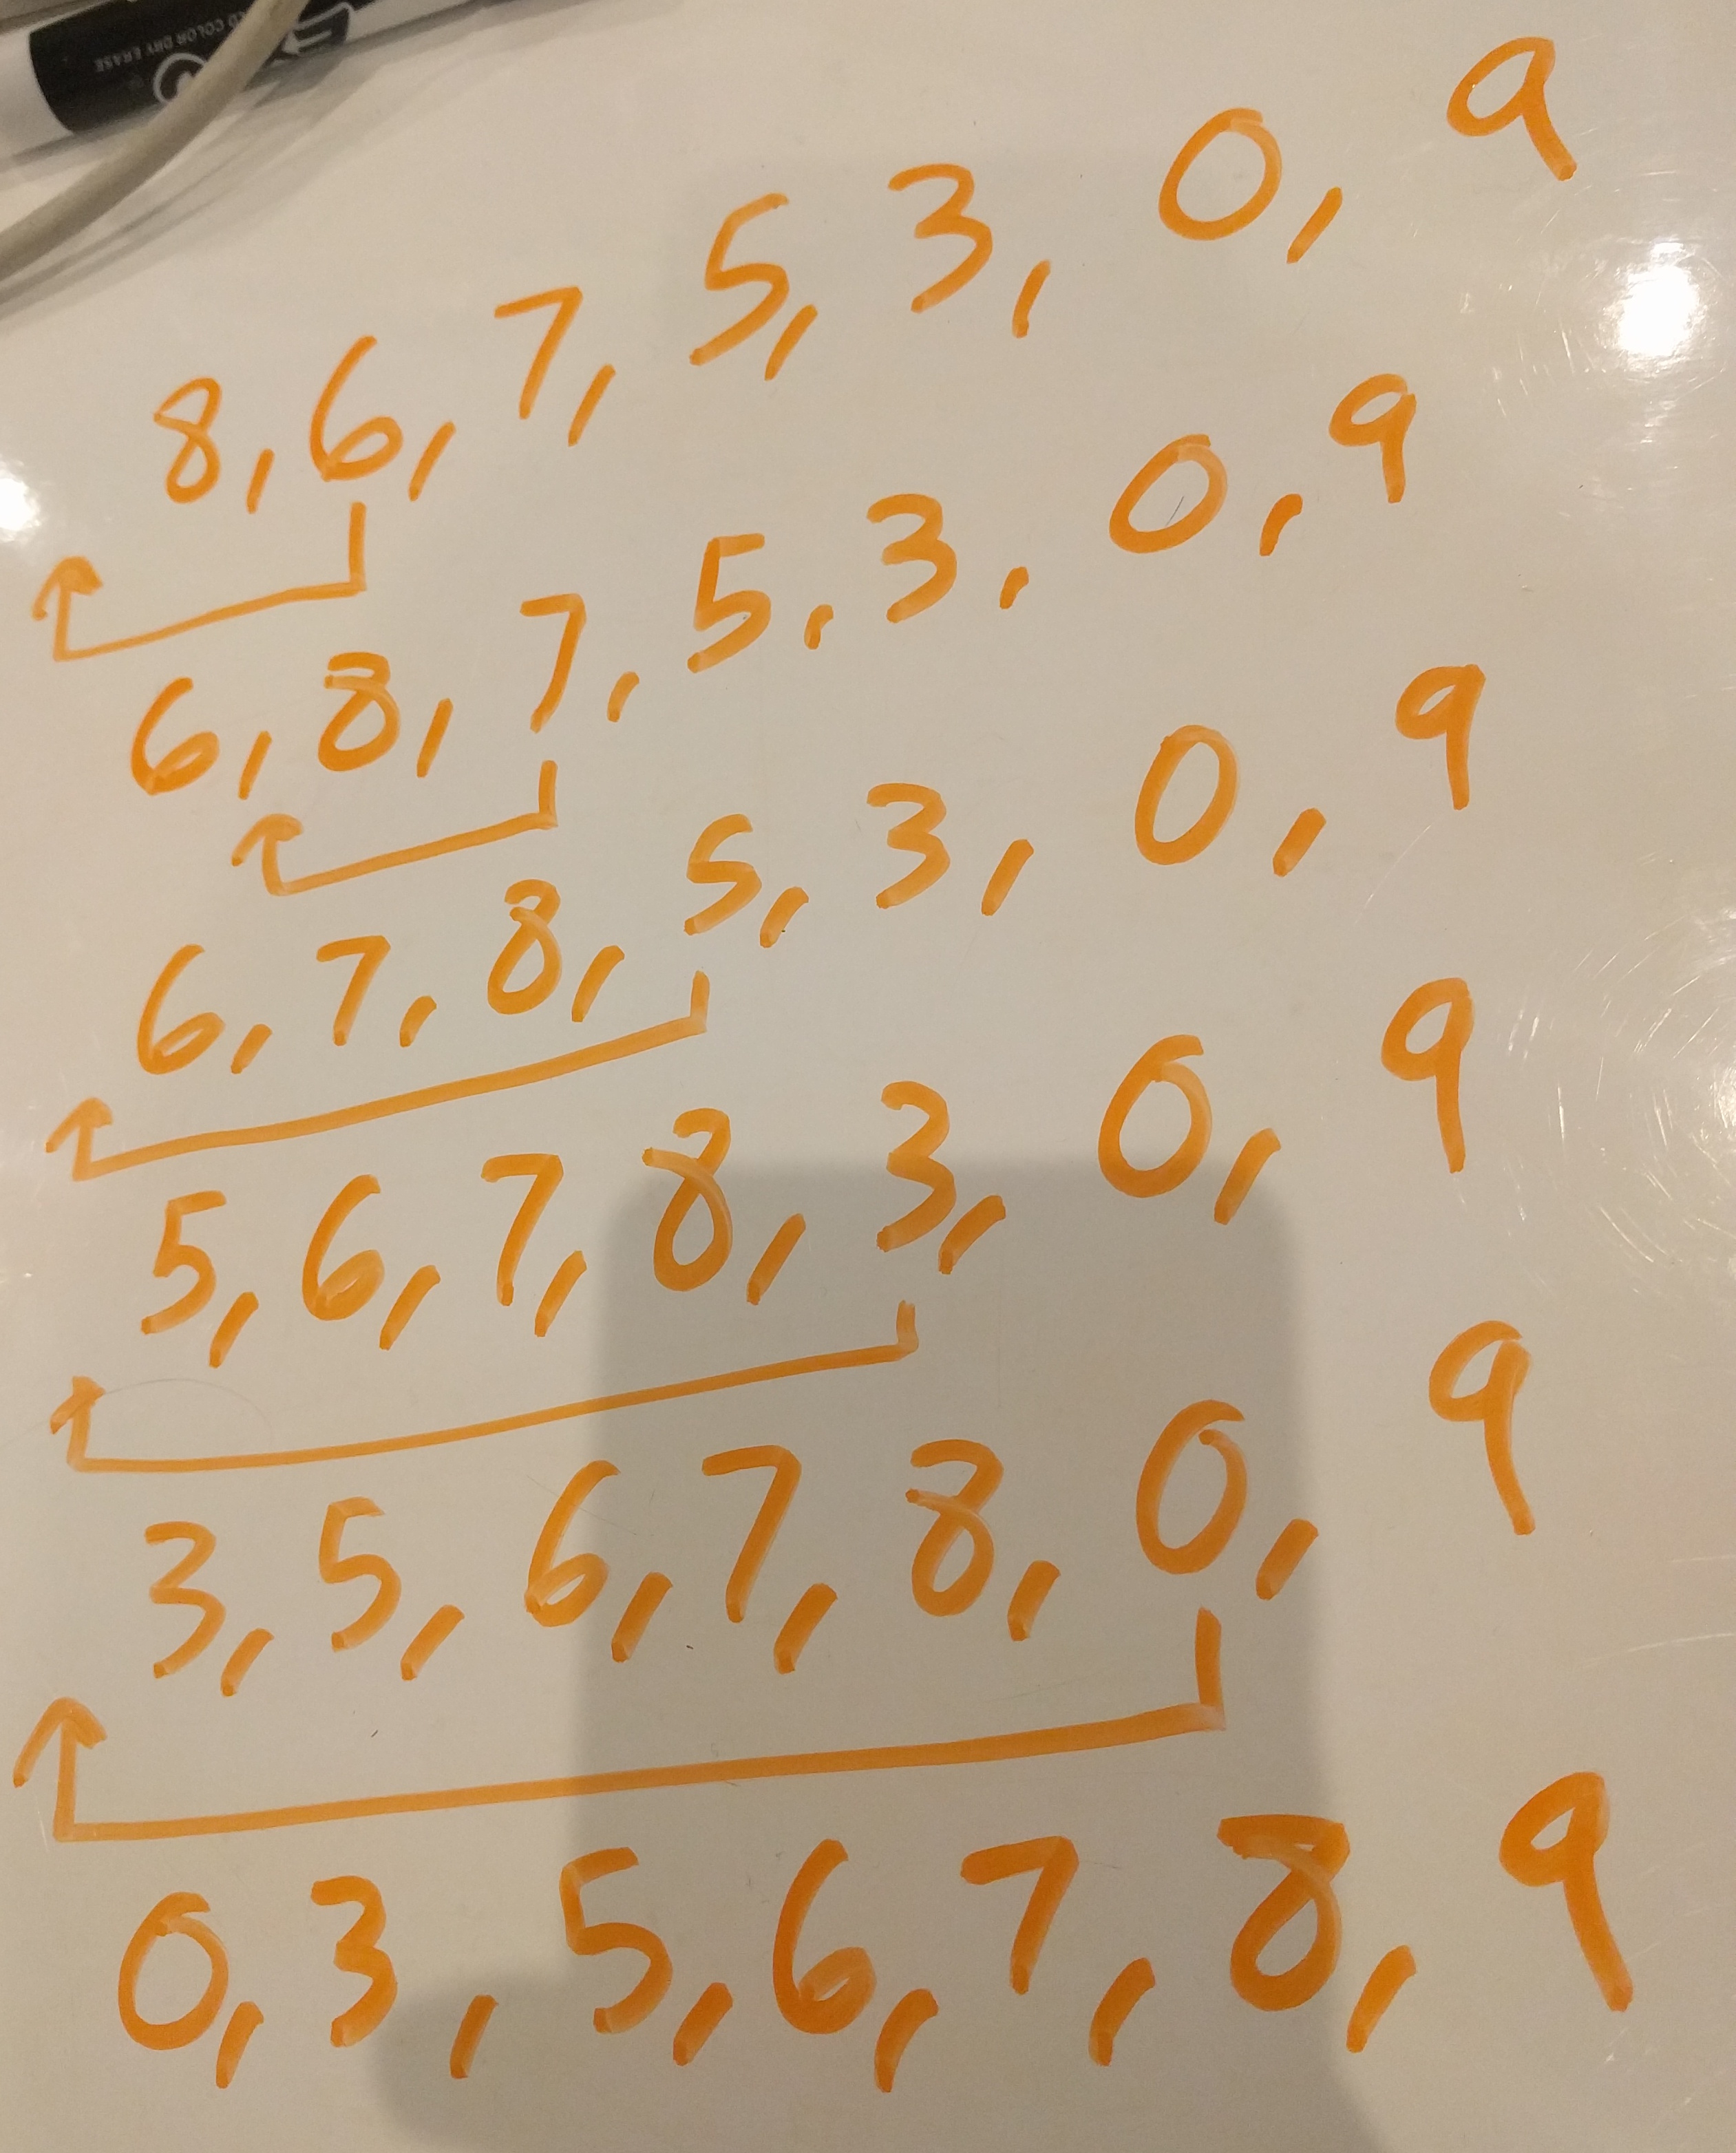 COLOR DRY ERASE
8, 6, 7, 5, 3, 0, 9
6, 8, 7, 5, 3, 0, 9
6, 7, 8, 5, 3, 0, 9
5, 6, 7, 8, 3, 0, 9
3, 5, 6, 7, 8, 0, 9
0, 3, 5, 6, 7, 8, 9